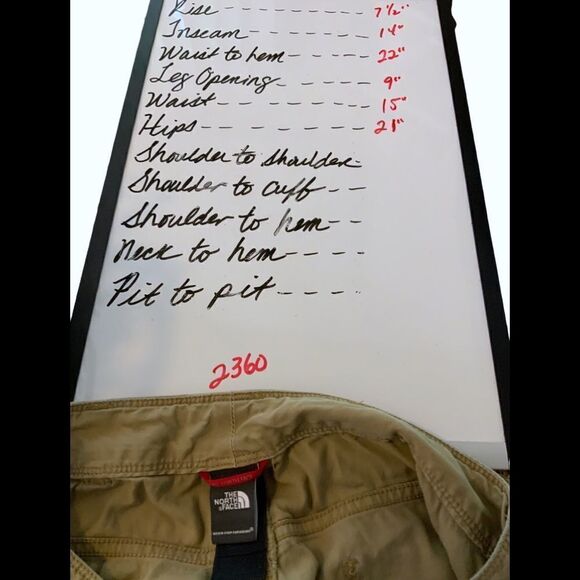 Rise - - - - - - - - - 7 1/2"
Inseam - - - - - - - 14"
Waist to hem - - - - - 22"
Leg Opening - - - - - 9"
Waist - - - - - - - - 15"
Hips - - - - - - - - 21"
Shoulder to shoulder -
Shoulder to cuff - -
Shoulder to hem - -
Neck to hem - - - -
Pit to pit - - - -
2360
THE
NORTH
FACE